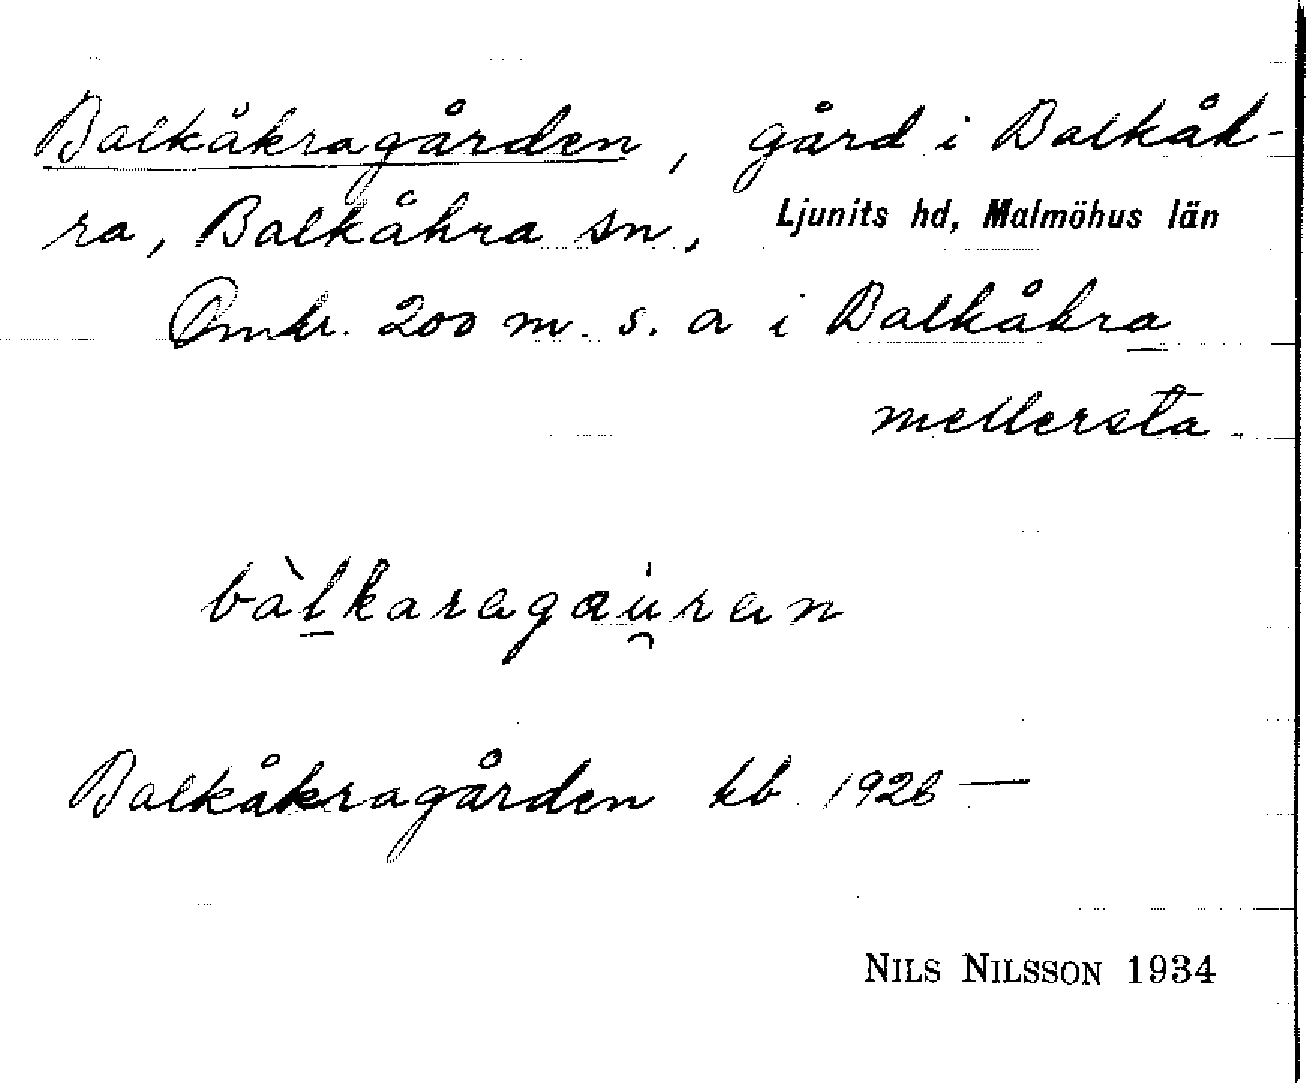 Balkåkragården, gård i Balkåk-
ra, Balkåkra sn, Ljunits hd, Malmöhus län
Omkr. 200 m. s. a i Balkåkra
mellersta.
bàlkaragaúran
Balkåkragården kb 1926 —
NILS NILSSON 1934